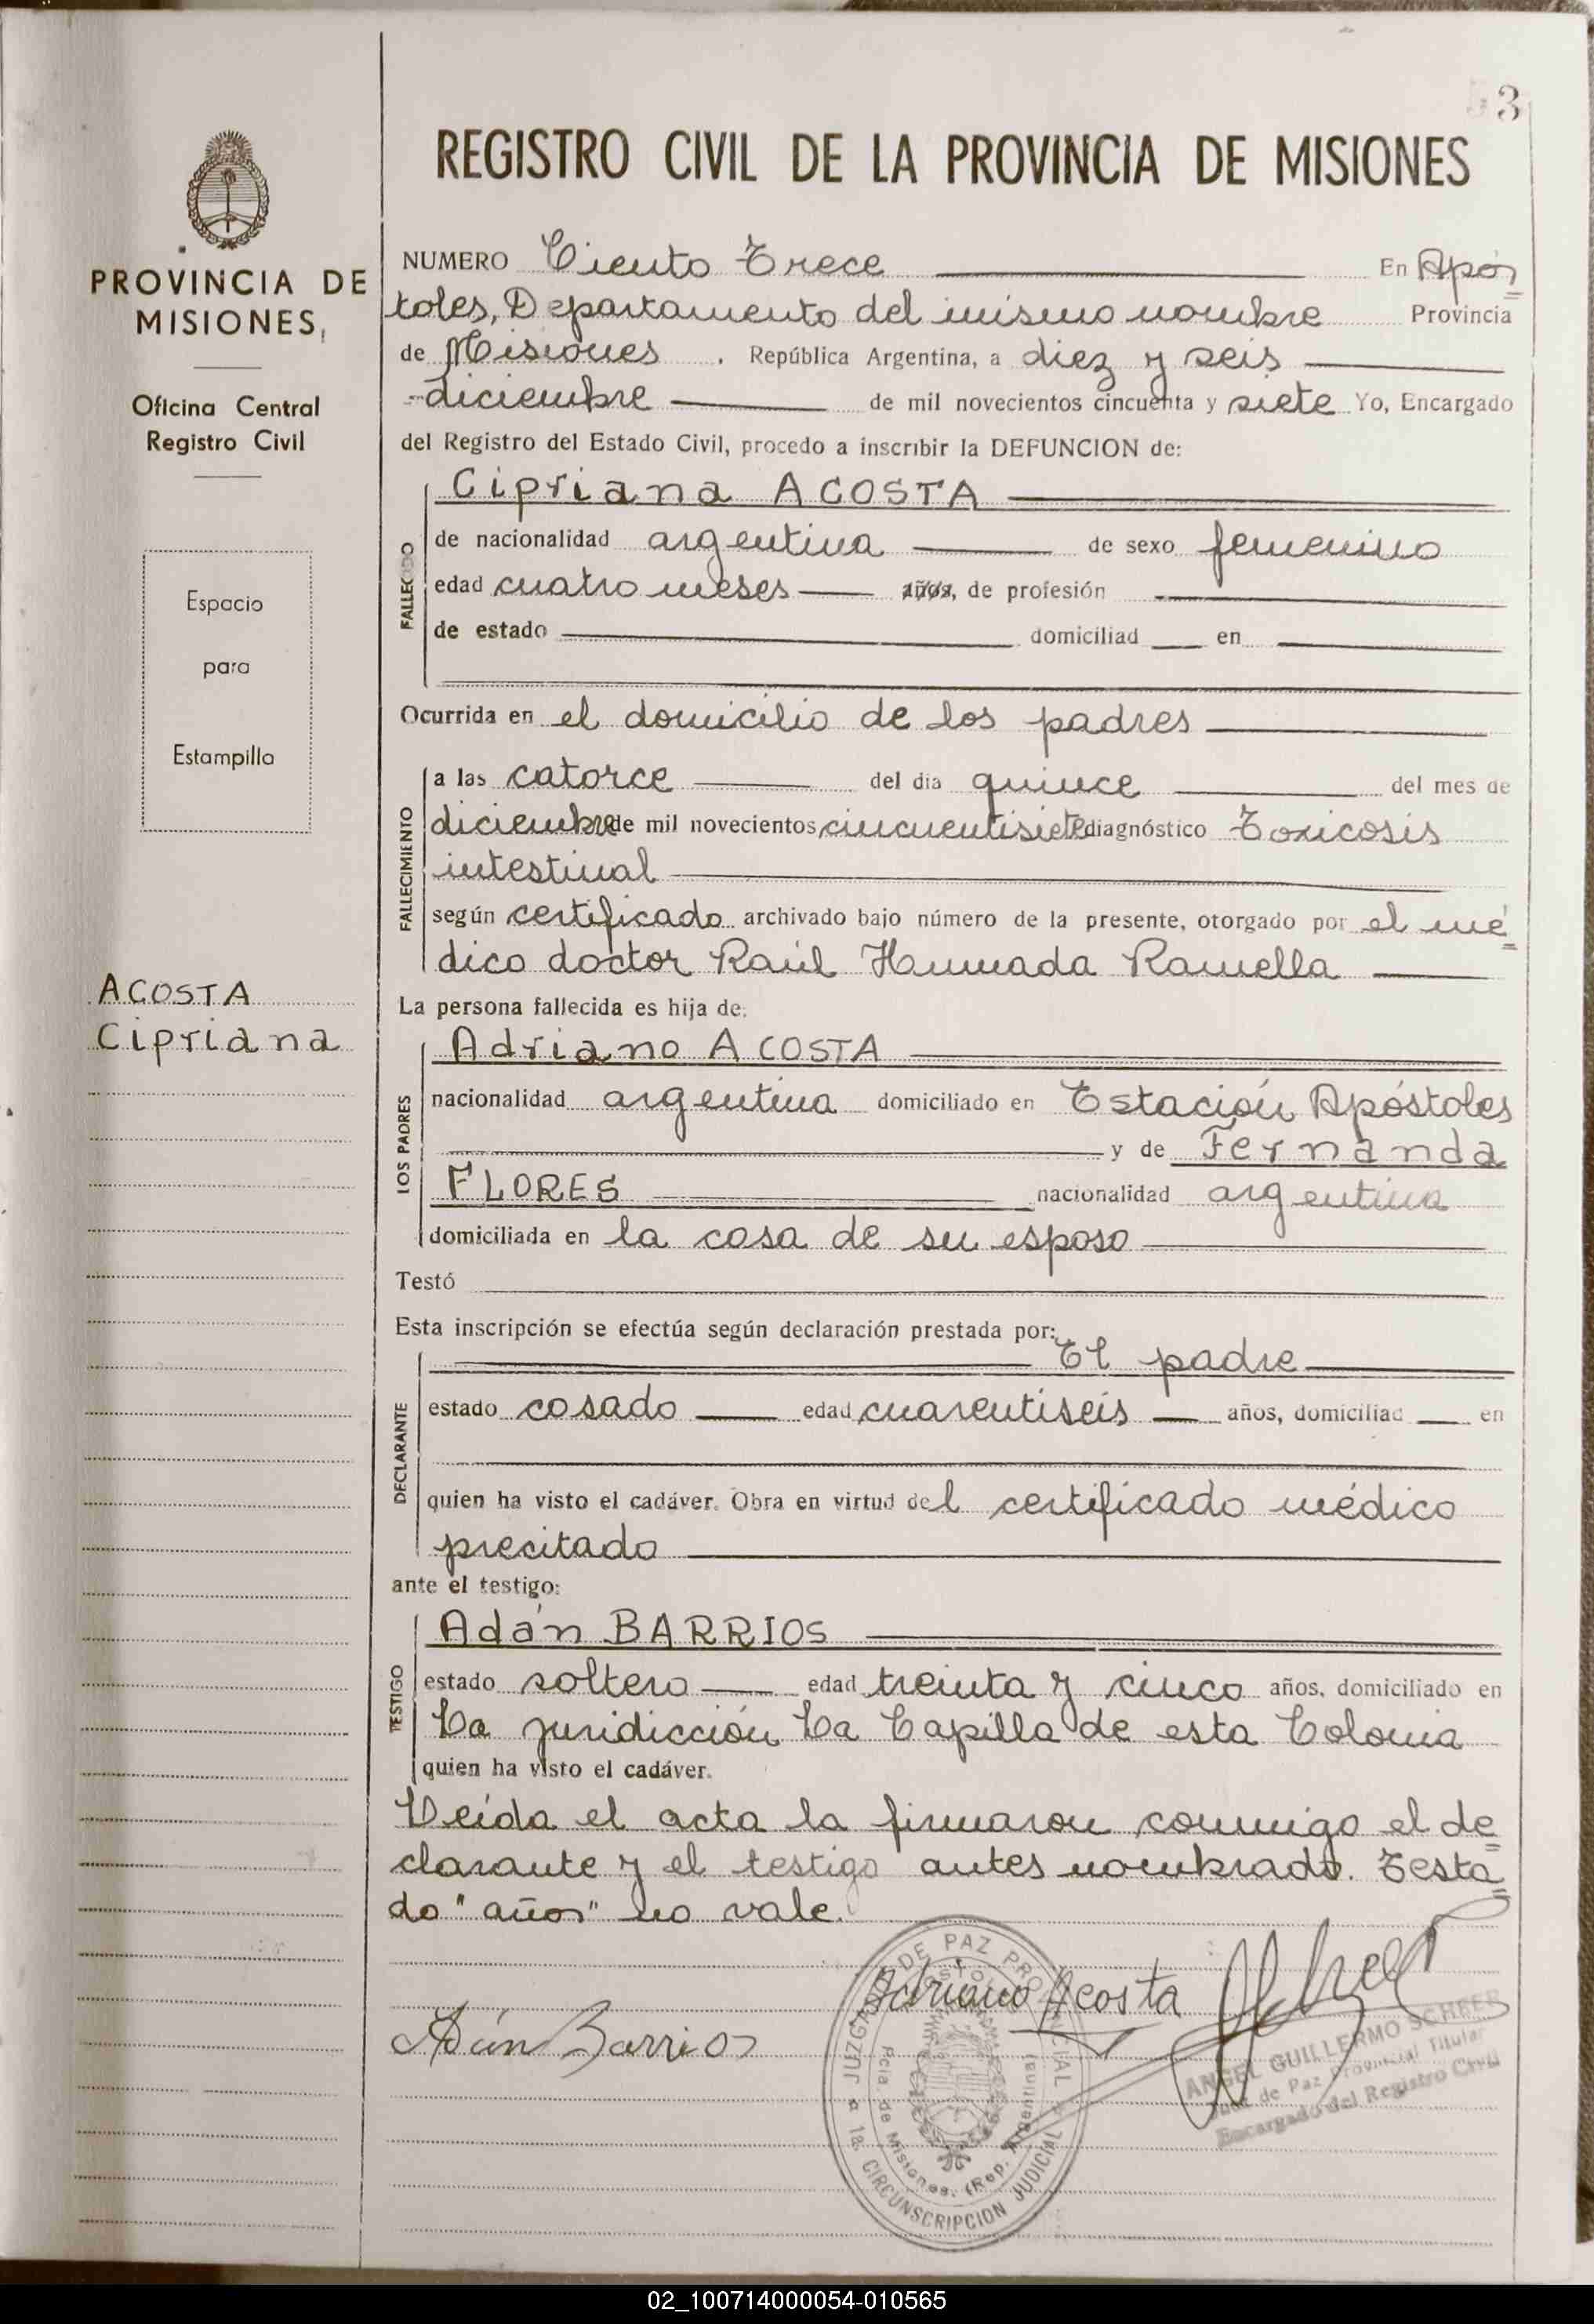 53
REGISTRO CIVIL DE LA PROVINCIA DE MISIONES
PROVINCIA DE
MISIONES,
Oficina Central
Registro Civil
Espacio
para
Estampilla
ACOSTA
Cipriana
NUMERO Ciento Trece En Após=
toles, Departamento del mismo nombre Provincia
de Misiones . República Argentina, a diez y seis
diciembre de mil novecientos cincuenta y siete Yo, Encargado
del Registro del Estado Civil, procedo a inscribir la DEFUNCION de:
FALLECIDO
Cipriana ACOSTA
de nacionalidad argentina de sexo femenino
edad cuatro meses años, de profesión
de estado domiciliad en
Ocurrida en el domicilio de los padres
FALLECIMIENTO
a las catorce del dia quince del mes de
diciembre de mil novecientos cincuentisiete diagnóstico Toxicosis
intestinal
según certificado archivado bajo número de la presente, otorgado por el mé=
dico doctor Raúl Ramella
La persona fallecida es hija de:
LOS PADRES
Adriano ACOSTA
nacionalidad argentina domiciliado en Estación Apóstoles
y de Fernanda
FLORES nacionalidad argentina
domiciliada en la casa de su esposo
Testó
Esta inscripción se efectúa según declaración prestada por:
DECLARANTE
El padre
estado casado edad cuarentiseis años, domiciliad en
quien ha visto el cadáver. Obra en virtud del certificado médico
precitado
ante el testigo:
TESTIGO
Adán BARRIOS
estado soltero edad treinta y cinco años, domiciliado en
La juridicción La Capilla de esta Colonia
quien ha visto el cadáver.
Leída el acta la firmaron conmigo el de=
clarante y el testigo antes nombrado. Testa=
do "años" no vale.
Adriano Acosta
Adán Barrios
JUZGADO DE PAZ PROVINCIAL
APOSTOLES
Pcia. de Misiones. (Rep. Argentina)
1a. CIRCUNSCRIPCION JUDICIAL
ANGEL GUILLERMO SCHEER
Juez de Paz Provincial Titular
Encargado del Registro Civil
02_100714000054-010565